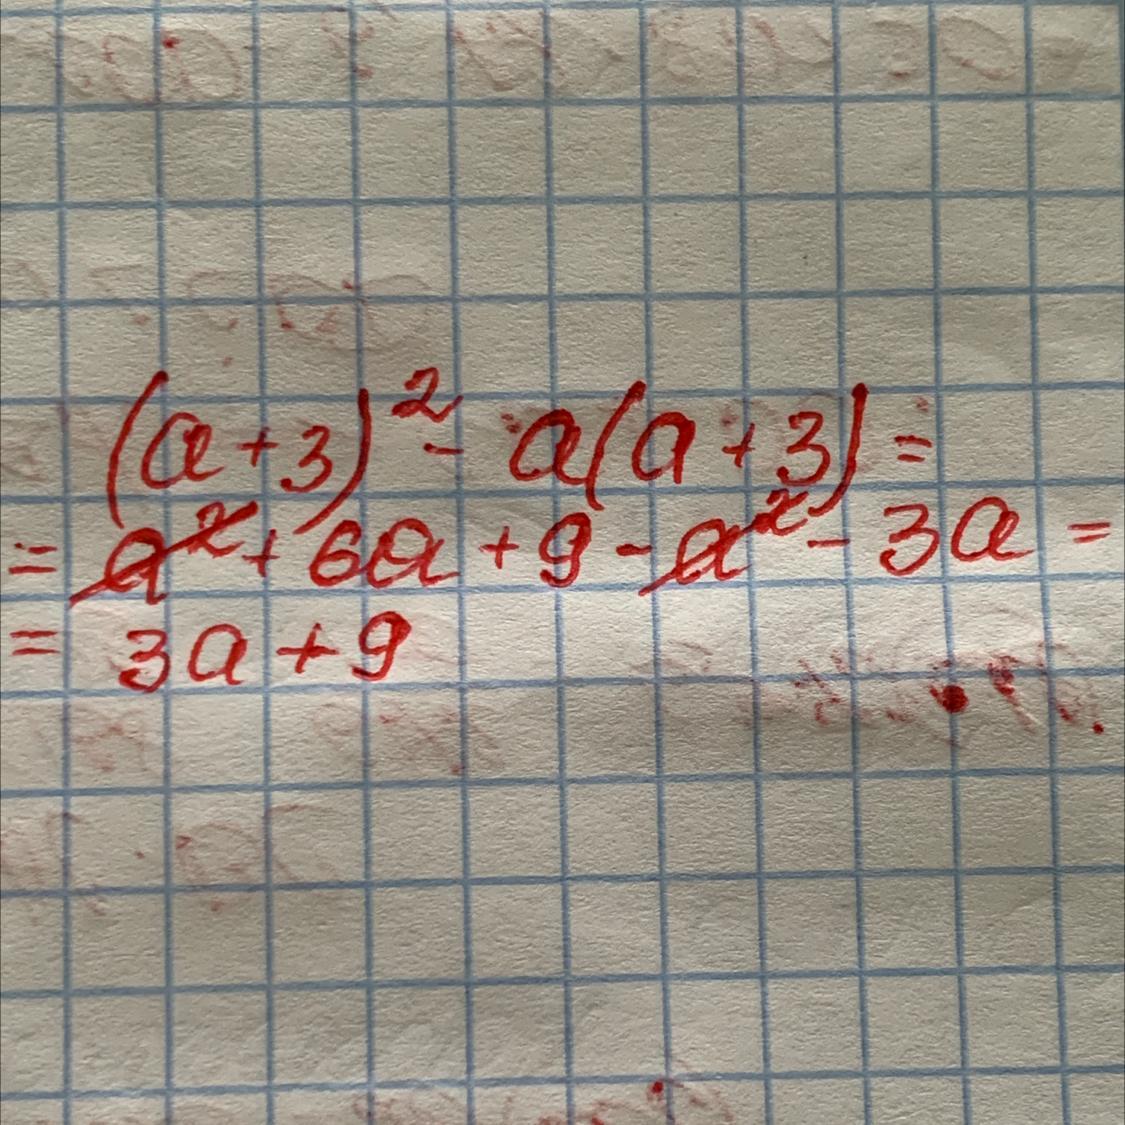 (a+3)² - a(a+3) =
= a² + 6a + 9 - a² - 3a =
= 3a + 9